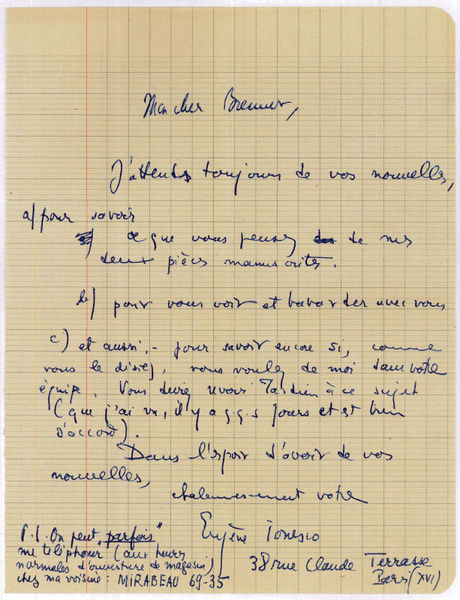 Mon cher Brenner,
J'attends toujours de vos nouvelles,
a) pour savoir
ce que vous pensez de mes
deux pièces manuscrites.
b) pour vous voir et bavarder avec vous
c) et aussi, - pour savoir encore si, comme
vous le disiez, vous voulez de moi dans votre
équipe. Vous devez revoir Tardieu à ce sujet
(que j'ai vu, il y a q.q.s jours et est bien
d'accord).
Dans l'espoir d'avoir de vos
nouvelles,
chaleureusement votre
Eugène Ionesco
38 rue Claude Terrasse
Paris (XVI)
P.S. On peut "parfois"
me téléphoner (aux heures
normales d'ouverture de magasin)
chez ma voisine : MIRABEAU 69-35